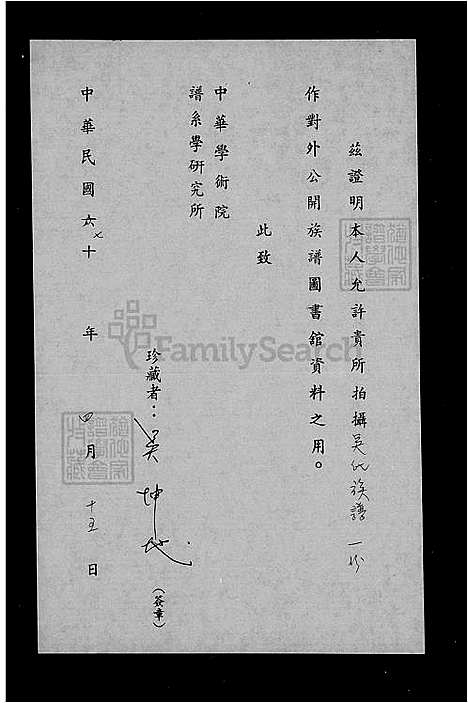 茲證明本人允許貴所拍攝吳氏族譜一份
作對外公開族譜圖書館資料之用。
此致
中華學術院
譜系學研究所
珍藏者：吳坤地
（簽章）
中華民國六十七年四月十五日
FamilySearch